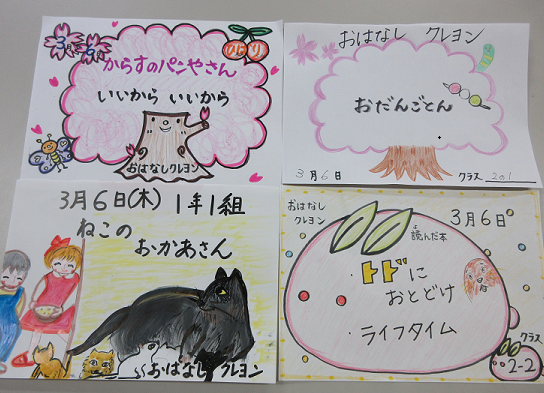 3 6
1の1
からすのパンやさん
いいから いいから
おはなしクレヨン
おはなし クレヨン
おだんごとん
3月6日 クラス 2の1
3月6日(木) 1年1組
ねこの
おかあさん
おはなし クレヨン
おはなし
クレヨン
3月6日
読んだ本
よ
・トドに
おとどけ
・ライフタイム
クラス
2-2